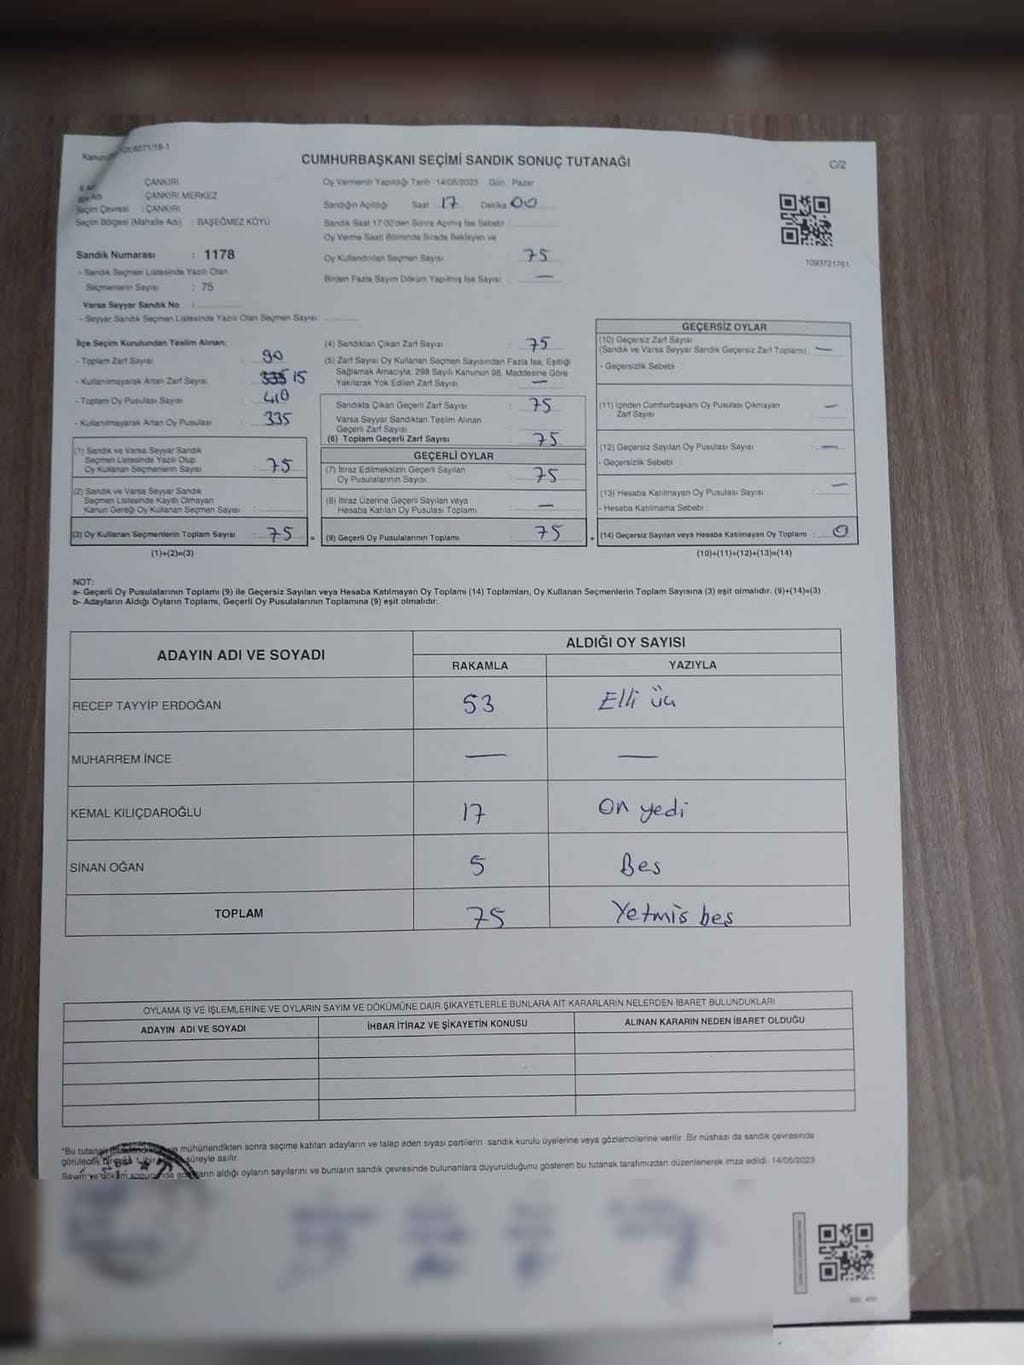 CUMHURBAŞKANI SEÇİMİ SANDIK SONUÇ TUTANAĞI
C/2
ÇANKIRI
ÇANKIRI MERKEZ
Seçim Çevresi : ÇANKIRI
Seçim Bölgesi (Mahalle Adı) : BAŞEĞMEZ KÖYÜ
Oy Vermenin Yapıldığı Tarih : 14/05/2023 Gün : Pazar
Sandığın Açıldığı Saat 17 Dakika 00
Sandık Saat 17:00'den Sonra Açılmış İse Sebebi
Oy Verme Saati Bitiminde Sırada Bekleyen ve
Oy Kullandırılan Seçmen Sayısı 75
Birden Fazla Sayım Döküm Yapılmış İse Sayısı : —
1093721761
Sandık Numarası : 1178
- Sandık Seçmen Listesinde Yazılı Olan
Seçmenlerin Sayısı : 75
Varsa Seyyar Sandık No :
- Seyyar Sandık Seçmen Listesinde Yazılı Olan Seçmen Sayısı:
İlçe Seçim Kurulundan Teslim Alınan;
- Toplam Zarf Sayısı : 90
- Kullanılmayarak Artan Zarf Sayısı : 335 15
- Toplam Oy Pusulası Sayısı : 410
- Kullanılmayarak Artan Oy Pusulası : 335
(1) Sandık ve Varsa Seyyar Sandık
Seçmen Listesinde Yazılı Olup
Oy Kullanan Seçmenlerin Sayısı : 75
(2) Sandık ve Varsa Seyyar Sandık
Seçmen Listesinde Kayıtlı Olmayan
Kanun Gereği Oy Kullanan Seçmen Sayısı :
(3) Oy Kullanan Seçmenlerin Toplam Sayısı : 75
(1)+(2)=(3)
(4) Sandıktan Çıkan Zarf Sayısı : 75
(5) Zarf Sayısı Oy Kullanan Seçmen Sayısından Fazla İse, Eşitliği
Sağlamak Amacıyla, 298 Sayılı Kanunun 98. Maddesine Göre
Yakılarak Yok Edilen Zarf Sayısı : —
Sandıkta Çıkan Geçerli Zarf Sayısı : 75
Varsa Seyyar Sandıktan Teslim Alınan
Geçerli Zarf Sayısı :
(6) Toplam Geçerli Zarf Sayısı : 75
GEÇERLİ OYLAR
(7) İtiraz Edilmeksizin Geçerli Sayılan
Oy Pusulalarının Sayısı : 75
(8) İtiraz Üzerine Geçerli Sayılan veya
Hesaba Katılan Oy Pusulası Toplamı : —
= (9) Geçerli Oy Pusulalarının Toplamı : 75
GEÇERSİZ OYLAR
(10) Geçersiz Zarf Sayısı
(Sandık ve Varsa Seyyar Sandık Geçersiz Zarf Toplamı) : —
- Geçersizlik Sebebi :
(11) İçinden Cumhurbaşkanı Oy Pusulası Çıkmayan
Zarf Sayısı : —
(12) Geçersiz Sayılan Oy Pusulası Sayısı : —
- Geçersizlik Sebebi
(13) Hesaba Katılmayan Oy Pusulası Sayısı : —
- Hesaba Katılmama Sebebi :
+ (14) Geçersiz Sayılan veya Hesaba Katılmayan Oy Toplamı : 0
(10)+(11)+(12)+(13)=(14)
NOT:
a- Geçerli Oy Pusulalarının Toplamı (9) ile Geçersiz Sayılan veya Hesaba Katılmayan Oy Toplamı (14) Toplamları, Oy Kullanan Seçmenlerin Toplam Sayısına (3) eşit olmalıdır. (9)+(14)=(3)
b- Adayların Aldığı Oyların Toplamı, Geçerli Oy Pusulalarının Toplamına (9) eşit olmalıdır.
ADAYIN ADI VE SOYADI
ALDIĞI OY SAYISI
RAKAMLA YAZIYLA
RECEP TAYYİP ERDOĞAN 53 Elli üç
MUHARREM İNCE — —
KEMAL KILIÇDAROĞLU 17 On yedi
SİNAN OĞAN 5 Bes
TOPLAM 75 Yetmis beş
OYLAMA İŞ VE İŞLEMLERİNE VE OYLARIN SAYIM VE DÖKÜMÜNE DAİR ŞİKAYETLERLE BUNLARA AİT KARARLARIN NELERDEN İBARET BULUNDUKLARI
ADAYIN ADI VE SOYADI İHBAR İTİRAZ VE ŞİKAYETİN KONUSU ALINAN KARARIN NEDEN İBARET OLDUĞU
*Bu tutanak mühürlendikten sonra seçime katılan adayların ve talep eden siyasi partilerin sandık kurulu üyelerine veya gözlemcilerine verilir. Bir nüshası da sandık çevresinde
süreyle asılır.
aldığı oyların sayılarını ve bunların sandık çevresinde bulunanlara duyurulduğunu gösteren bu tutanak tarafımızdan düzenlenerek imza edildi. 14/05/2023